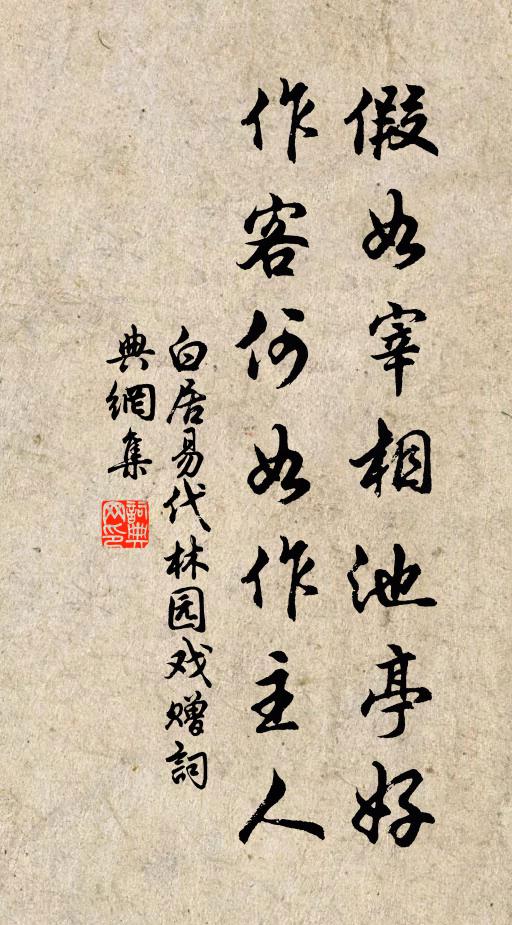 假如宰相池亭好
作客何如作主人
白居易代林园戏赠詞
典網集
詞典
网印